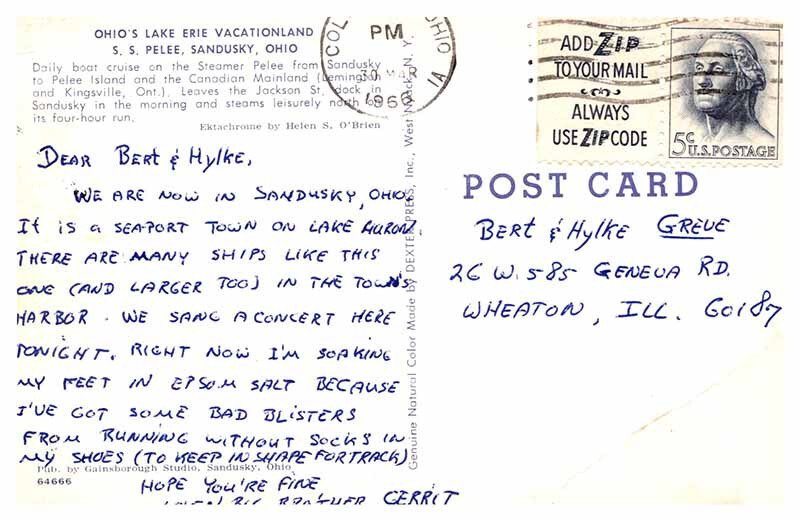 OHIO'S LAKE ERIE VACATIONLAND
S. S. PELEE, SANDUSKY, OHIO
Daily boat cruise on the Steamer Pelee from Sandusky
to Pelee Island and the Canadian Mainland (Lemington
and Kingsville, Ont.). Leaves the Jackson St. dock in
Sandusky in the morning and steams leisurely north on
its four-hour run.
Ektachrome by Helen S. O'Brien
DEAR BERT & HYLKE,
WE ARE NOW IN SANDUSKY, OHIO.
IT IS A SEAPORT TOWN ON LAKE HURON.
THERE ARE MANY SHIPS LIKE THIS
ONE (AND LARGER TOO) IN THE TOWN'S
HARBOR. WE SANG A CONCERT HERE
TONIGHT. RIGHT NOW I'M SOAKING
MY FEET IN EPSOM SALT BECAUSE
I'VE GOT SOME BAD BLISTERS
FROM RUNNING WITHOUT SOCKS IN
MY SHOES (TO KEEP IN SHAPE FOR TRACK)
Pub. by Gainsborough Studio, Sandusky, Ohio
64666
HOPE YOU'RE FINE
BIG BROTHER GERRIT
Genuine Natural Color Made by DEXTER PRESS, Inc., West Nyack, N. Y.
PM
OHIO
30 MAR
1966
ADD ZIP
TO YOUR MAIL
ALWAYS
USE ZIP CODE
5c
U.S. POSTAGE
POST CARD
BERT & HYLKE GREVE
26 W. 585 GENEVA RD.
WHEATON, ILL. 60187